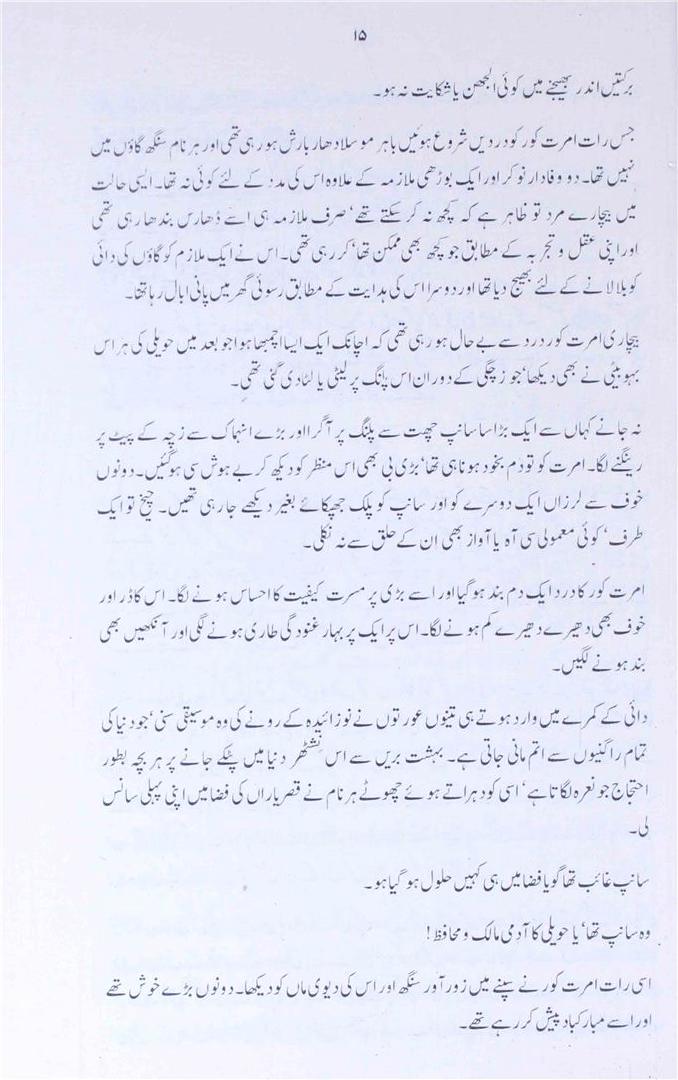 ۱۵
برکتیں اندر بھیجنے میں کوئی الجھن یا شکایت نہ ہو۔
جس رات امرت کور کو دردیں شروع ہوئیں باہر موسلا دھار بارش ہو رہی تھی اور ہر نام سنگھ گاؤں میں
نہیں تھا۔ دو وفادار نوکر اور ایک بوڑھی ملازمہ کے علاوہ اس کی مدد کے لئے کوئی نہ تھا۔ ایسی حالت
میں بیچارے مرد تو ظاہر ہے کہ کچھ نہ کر سکتے تھے‘ صرف ملازمہ ہی اسے ڈھارس بندھا رہی تھی
اور اپنی عقل و تجربہ کے مطابق جو کچھ بھی ممکن تھا‘ کر رہی تھی۔ اس نے ایک ملازم کو گاؤں کی دائی
کو بلا لانے کے لئے بھیج دیا تھا اور دوسرا اس کی ہدایت کے مطابق رسوئی گھر میں پانی ابال رہا تھا۔
بیچاری امرت کور درد سے بے حال ہو رہی تھی کہ اچانک ایک ایسا اچمبھا ہوا جو بعد میں حویلی کی ہر اس
بہو بیٹی نے بھی دیکھا‘ جو زچگی کے دوران اس پلنگ پر لیٹی یا لٹا دی گئی تھی۔
نہ جانے کہاں سے ایک بڑا سا سانپ چھت سے پلنگ پر آ گرا اور بڑے انہماک سے زچہ کے پیٹ پر
رینگنے لگا۔ امرت کو تو دم بخود ہونا ہی تھا‘ بڑی بی بھی اس منظر کو دیکھ کر بے ہوش سی ہو گئیں۔ دونوں
خوف سے لرزاں ایک دوسرے کو اور سانپ کو پلک جھپکائے بغیر دیکھے جا رہی تھیں۔ چیخ تو ایک
طرف‘ کوئی معمولی سی آہ یا آواز بھی ان کے حلق سے نہ نکلی۔
امرت کور کا درد ایک دم بند ہو گیا اور اسے بڑی پر مسرت کیفیت کا احساس ہونے لگا۔ اس کا ڈر اور
خوف بھی دھیرے دھیرے کم ہونے لگا۔ اس پر ایک پر بہار غنودگی طاری ہونے لگی اور آنکھیں بھی
بند ہونے لگیں۔
دائی کے کمرے میں وارد ہوتے ہی تینوں عورتوں نے نوزائیدہ کے رونے کی وہ موسیقی سنی‘ جو دنیا کی
تمام راگنیوں سے اتم مانی جاتی ہے۔ بہشت بریں سے اس دنیا میں پٹکے جانے پر ہر بچہ بطور
احتجاج جو نعرہ لگاتا ہے‘ اسی کو دہراتے ہوئے چھوٹے ہر نام نے قصر یاراں کی فضا میں اپنی پہلی سانس
لی۔
سانپ غائب تھا گویا فضا میں ہی کہیں حلول ہو گیا ہو۔
وہ سانپ تھا‘ یا حویلی کا آدمی مالک و محافظ!
اسی رات امرت کور نے سپنے میں زور آور سنگھ اور اس کی دیوی ماں کو دیکھا۔ دونوں بڑے خوش تھے
اور اسے مبارکباد پیش کر رہے تھے۔